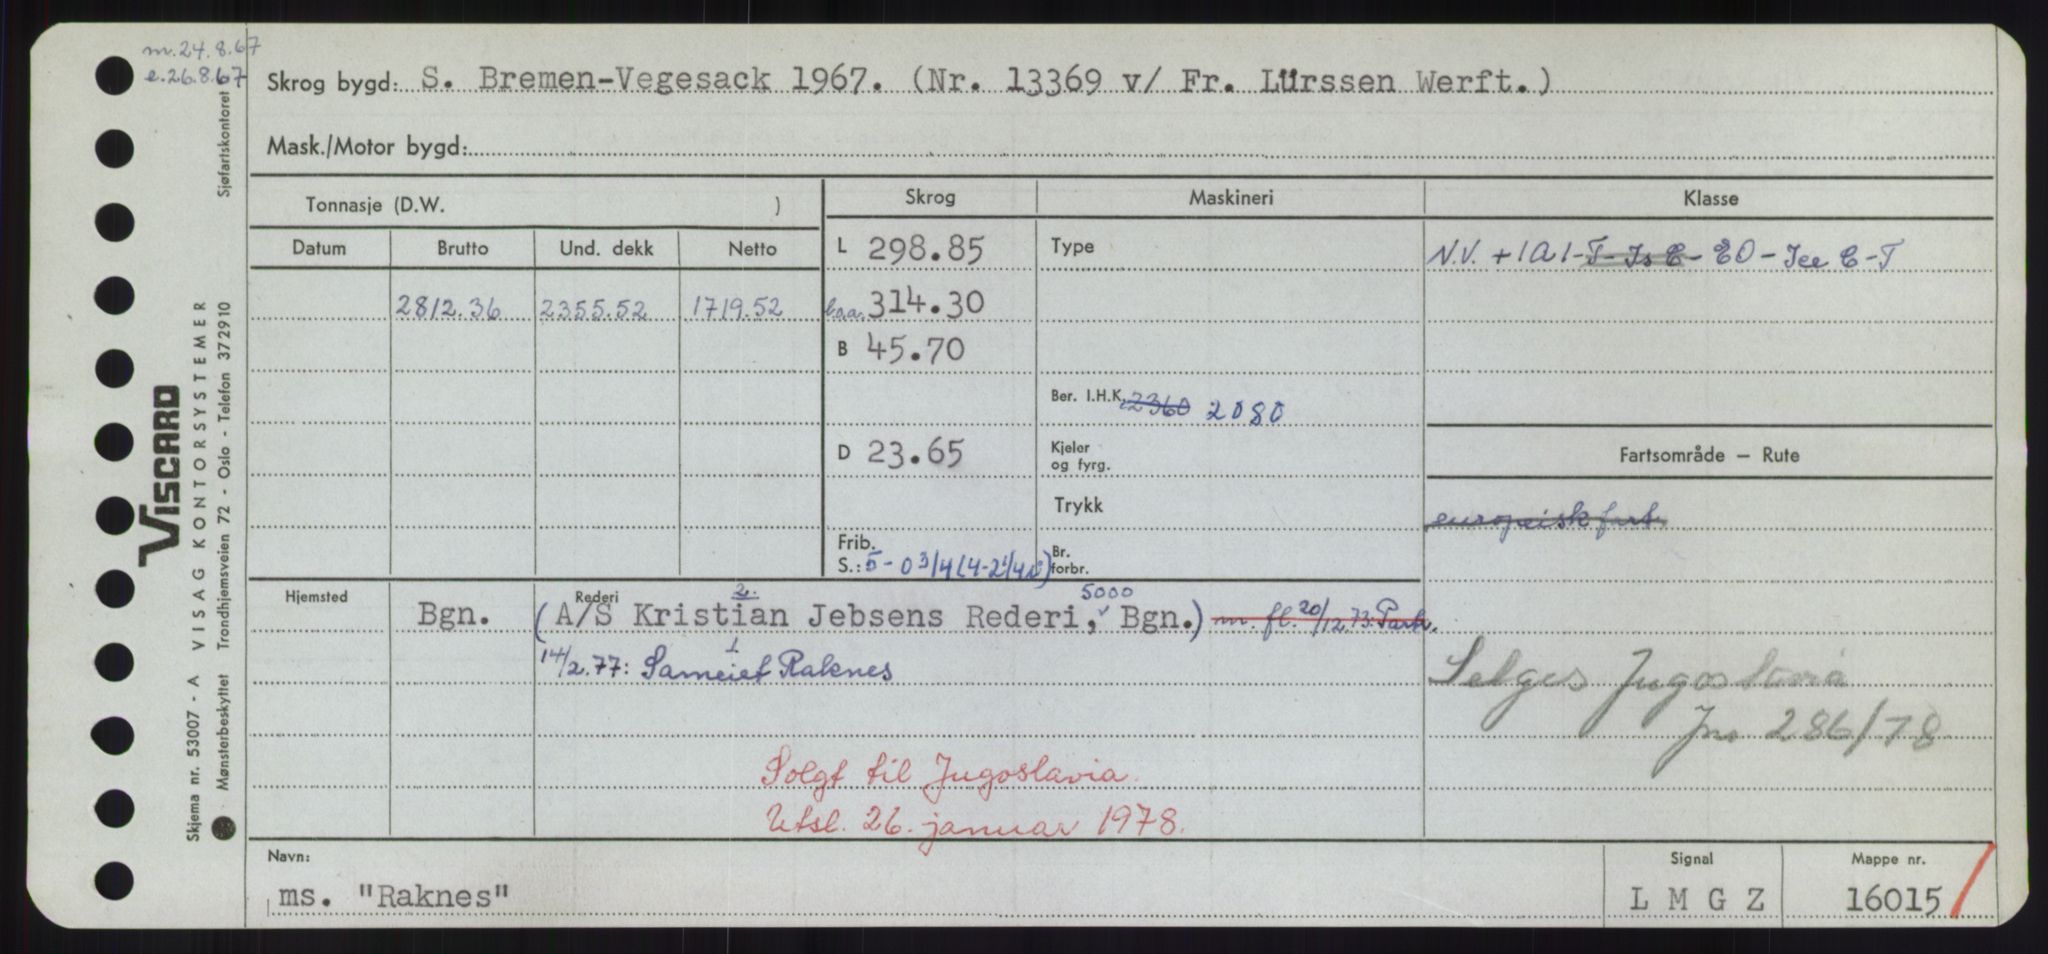 m. 24.8.67
e. 26.8.67
Skrog bygd: S. Bremen-Vegesack 1967. (Nr. 13369 v/ Fr. Lürssen Werft.)
Mask./Motor bygd:
Sjøfartskontoret
Tonnasje (D.W. )
Skrog
Maskineri
Klasse
Datum Brutto Und. dekk Netto
L 298.85
Type
N.V. +1A1-T-Is C-EO-Ice C-T
2812.36 2355.52 1719.52
l.o.a. 314.30
B 45.70
Ber. I.H.K. 2360 2080
D 23.65
Kjeler
og fyrg.
Fartsområde — Rute
Trykk
europeisk fart.
Frib.
S.: 5-0 3/4 (4-2 1/4
Br.
forbr.
Hjemsted
Rederi
2.
5000
Bgn. (A/S Kristian Jebsens Rederi, Bgn.) m. fl. 20/12.73. Partr.
1
14/2.77: Sameiet Raknes
Selges Jugoslavia
Jnr 286/78
Solgt til Jugoslavia.
Utsl. 26. januar 1978.
Navn:
ms. "Raknes"
Signal
L M G Z
Mappe nr.
16015
VISCARD
VISAG KONTORSYSTEMER
Trondhjemsveien 72 - Oslo - Telefon 372910
Skjema nr. 53007 - A
Mønsterbeskyttet